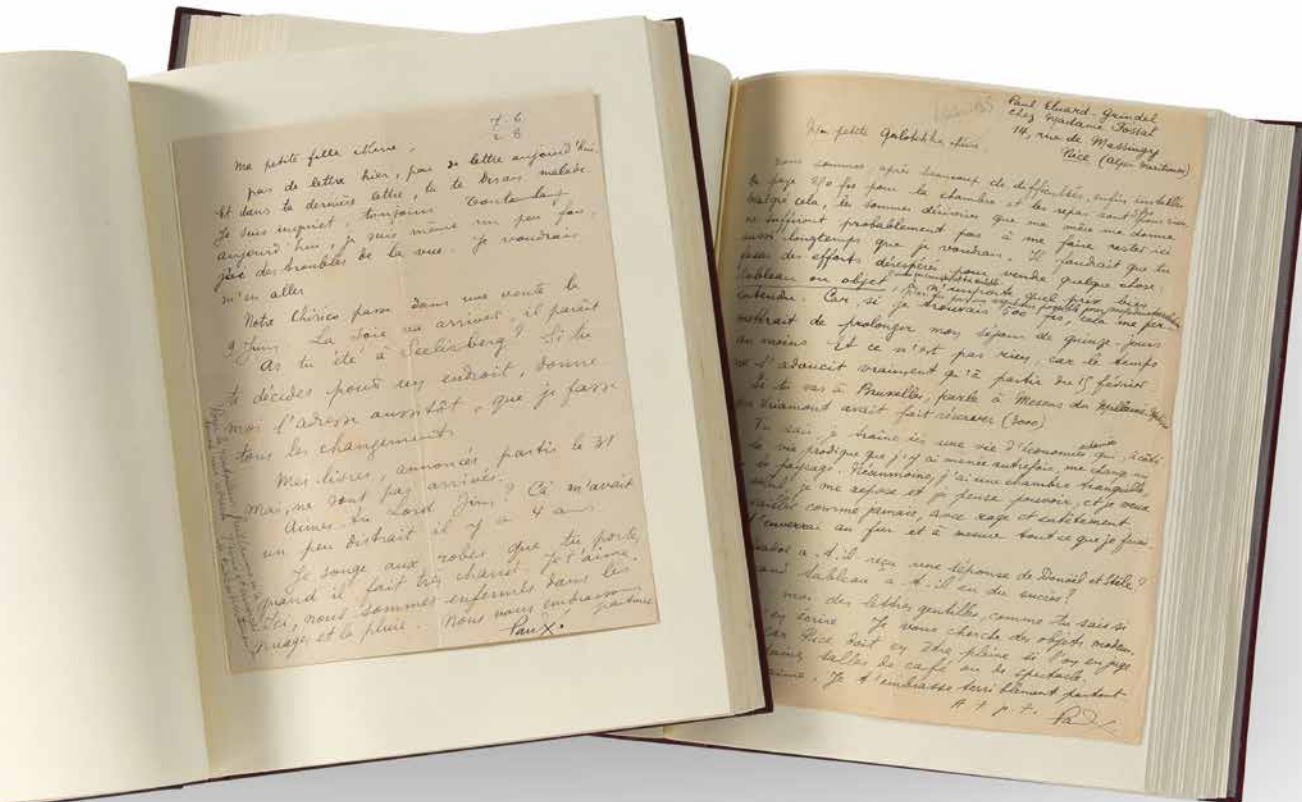 7-6
28
Ma petite fille chérie,
pas de lettre hier, pas de lettre aujourd'hui.
Et dans ta dernière lettre, tu te disais malade.
Je suis inquiet, toujours
aujourd'hui, je suis même un peu fou,
j'ai des troubles de la vue. Je voudrais
m'en aller
Notre Chirico passe dans une vente le
9 Juin. La Soie va arriver, il paraît
As tu été à Seelisberg ? Si tu
te décides pour un endroit, donne
moi l'adresse aussitôt, que je fasse
tous les changements
Mes livres, annoncés partis le 31
mai, ne sont pas arrivés.
Aimes-tu Lord Jim ? Ca m'avait
un peu distrait il y a 4 ans.
Je songe aux robes que tu portes
quand il fait très chaud. Je t'aime.
Ici, nous sommes enfermés dans les
nuages et la pluie. Nous nous embrassons partout
Paul.
Paul Eluard-Grindel
chez Madame Fossat
14, rue de Massingy
Nice (Alpes Maritimes)
Ma petite
nous sommes, après beaucoup de difficultés, enfin installés
Je paye 210 frs pour la chambre et les repas sont
malgré cela, les sommes dérisoires que ma mère me donne
ne suffiront probablement pas à me faire rester ici
aussi longtemps que je voudrais. Il faudrait que tu
fasses des efforts désespérés pour vendre quelque chose :
tableau ou objet n'importe quel prix bien
entendu. Car, si je trouvais 500 frs, cela me per-
mettrait de prolonger mon séjour de quinze jours
au moins Et ce n'est pas rien, car le temps
ne s'adoucit vraiment qu'à partir du 15 février
Si tu vas à Bruxelles, parle à Mesens du
avait fait réserver (3000)
Tu sais, je traîne ici une vie d'économies qui, à côté
de la vie prodigue que j'y ai menée autrefois, me change
le paysage. Néanmoins, j'ai une chambre tranquille,
je me repose et je pense pouvoir, et je veux
travailler comme jamais, avec rage et entêtement
t'enverrai au fur et à mesure tout ce que je ferai.
a-t-il reçu une réponse de Denoël et Steele ?
tableau a-t-il eu du succès ?
moi des lettres gentilles, comme tu sais si
en écrire. Je vous cherche des objets modern.
car Nice doit en être pleine si l'on en juge
salles de café ou de spectacle.
Je t'embrasse terriblement partout
A t. p. t. Paul